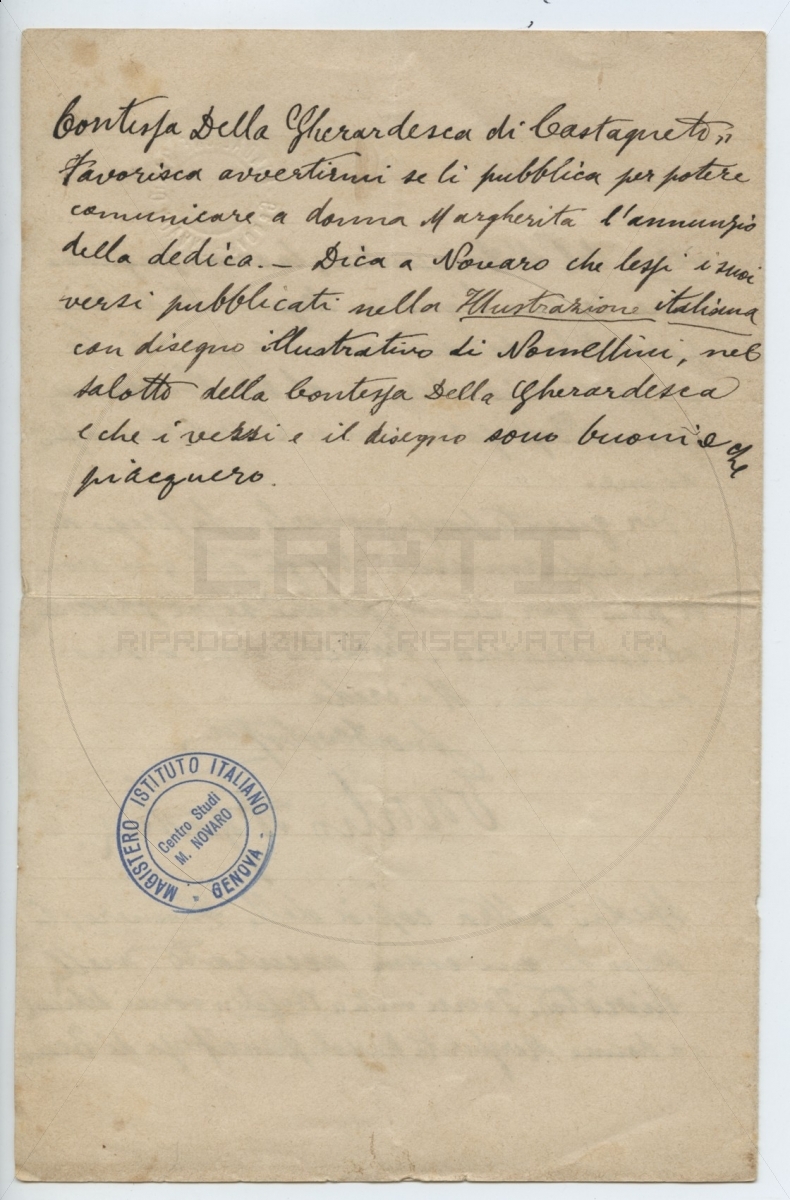 Contessa Della Gherardesca di Castagneto„
Favorisca avvertirmi se li pubblica per potere
comunicare a donna Margherita l'annunzio
della dedica. — Dica a Novaro che lessi i suoi
versi pubblicati nella Illustrazione italiana
con disegno illustrativo di Nomellini, nel
salotto della Contessa Della Gherardesca
e che i versi e il disegno sono buoni e che
piacquero.
CARTI
RIPRODUZIONE RISERVATA (R)
MAGISTERO ISTITUTO ITALIANO
Centro Studi
M. NOVARO
- GENOVA -